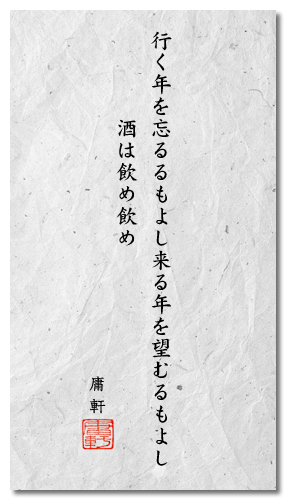 行く年を忘るるもよし来る年を望むるもよし
酒は飲め飲め
庸軒
庸軒